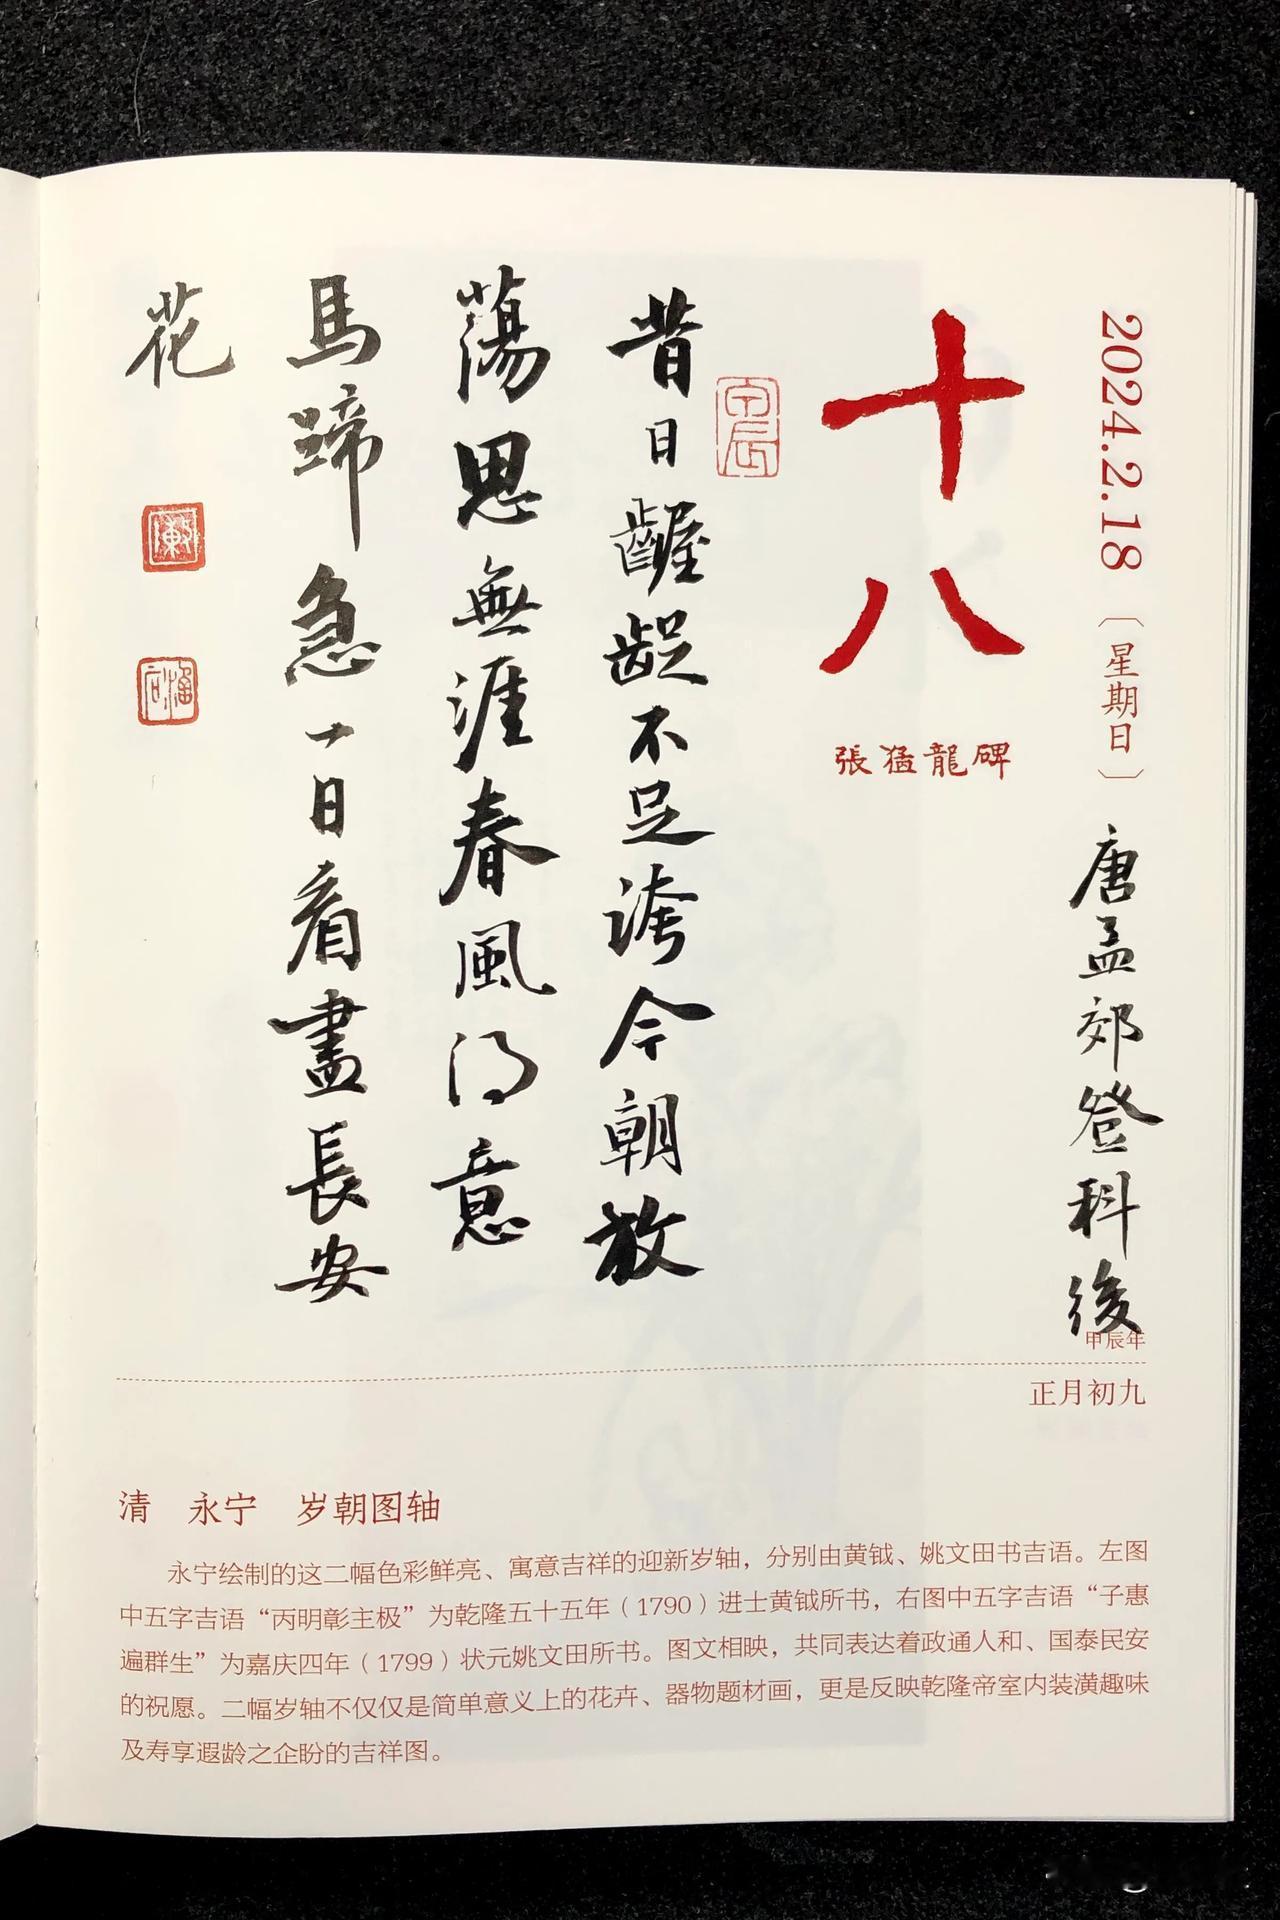 2024.2.18〔星期日〕
唐孟郊登科後
十八
張猛龍碑
甲辰
昔日齷齪不足誇今朝放
蕩思無涯春風得意
馬蹄急一日看盡長安
花
甲辰年
正月初九
清 永宁 岁朝图轴
永宁绘制的这二幅色彩鲜亮、寓意吉祥的迎新岁轴，分别由黄钺、姚文田书吉语。左图
中五字吉语“丙明彰主极”为乾隆五十五年（1790）进士黄钺所书，右图中五字吉语“子惠
遍群生”为嘉庆四年（1799）状元姚文田所书。图文相映，共同表达着政通人和、国泰民安
的祝愿。二幅岁轴不仅仅是简单意义上的花卉、器物题材画，更是反映乾隆帝室内装潢趣味
及寿享遐龄之企盼的吉祥图。